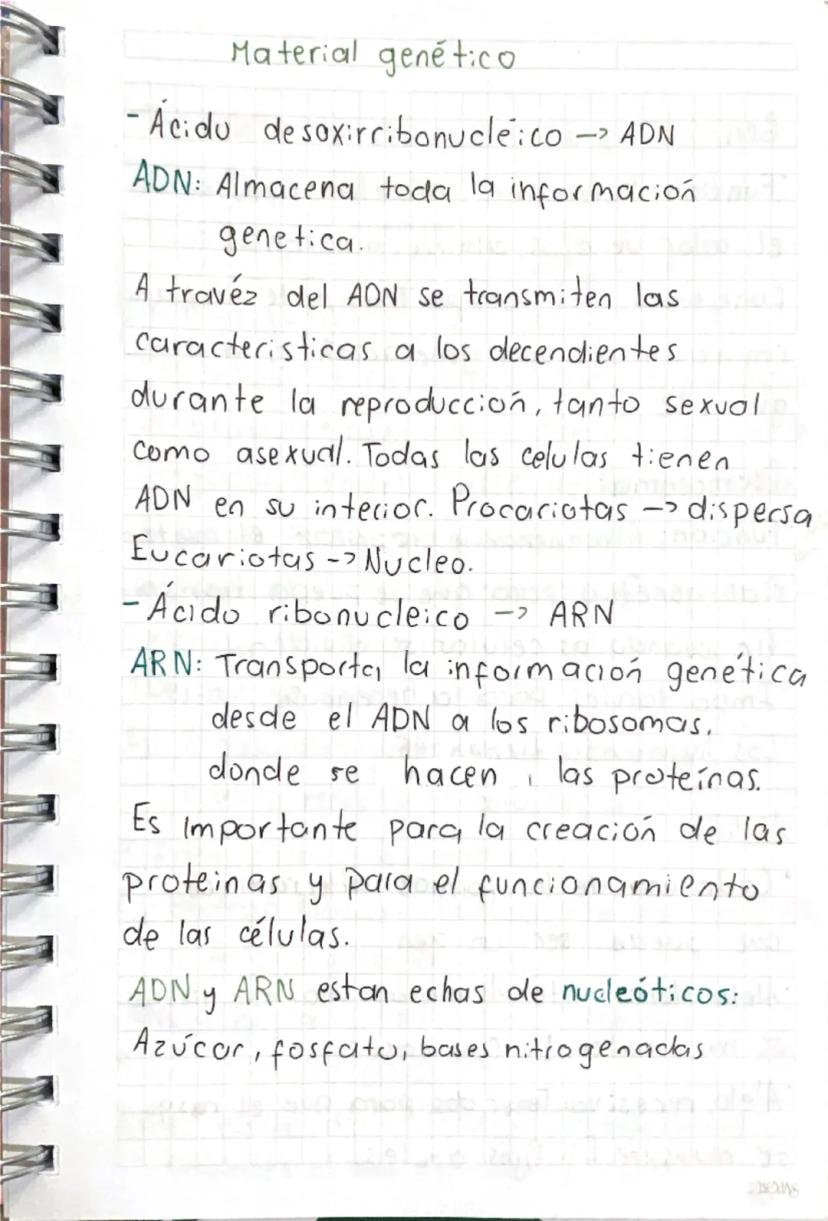 Material genético
- Ácido desoxirribonucleico -> ADN
ADN: Almacena toda la información
genetica.
A travéz del ADN se transmiten las
caracteristicas a los decendientes
durante la reproducción, tanto sexual
como asexual. Todas las celulas tienen
ADN en su interior. Procariotas -> dispersa
Eucariotas -> Nucleo.
- Ácido ribonucleico -> ARN
ARN: Transporta la información genética
desde el ADN a los ribosomas,
donde se hacen las proteínas.
Es importante para la creación de las
proteinas y para el funcionamiento
de las células.
ADN y ARN estan echas de nucleóticos:
Azúcar, fosfato, bases nitrogenadas